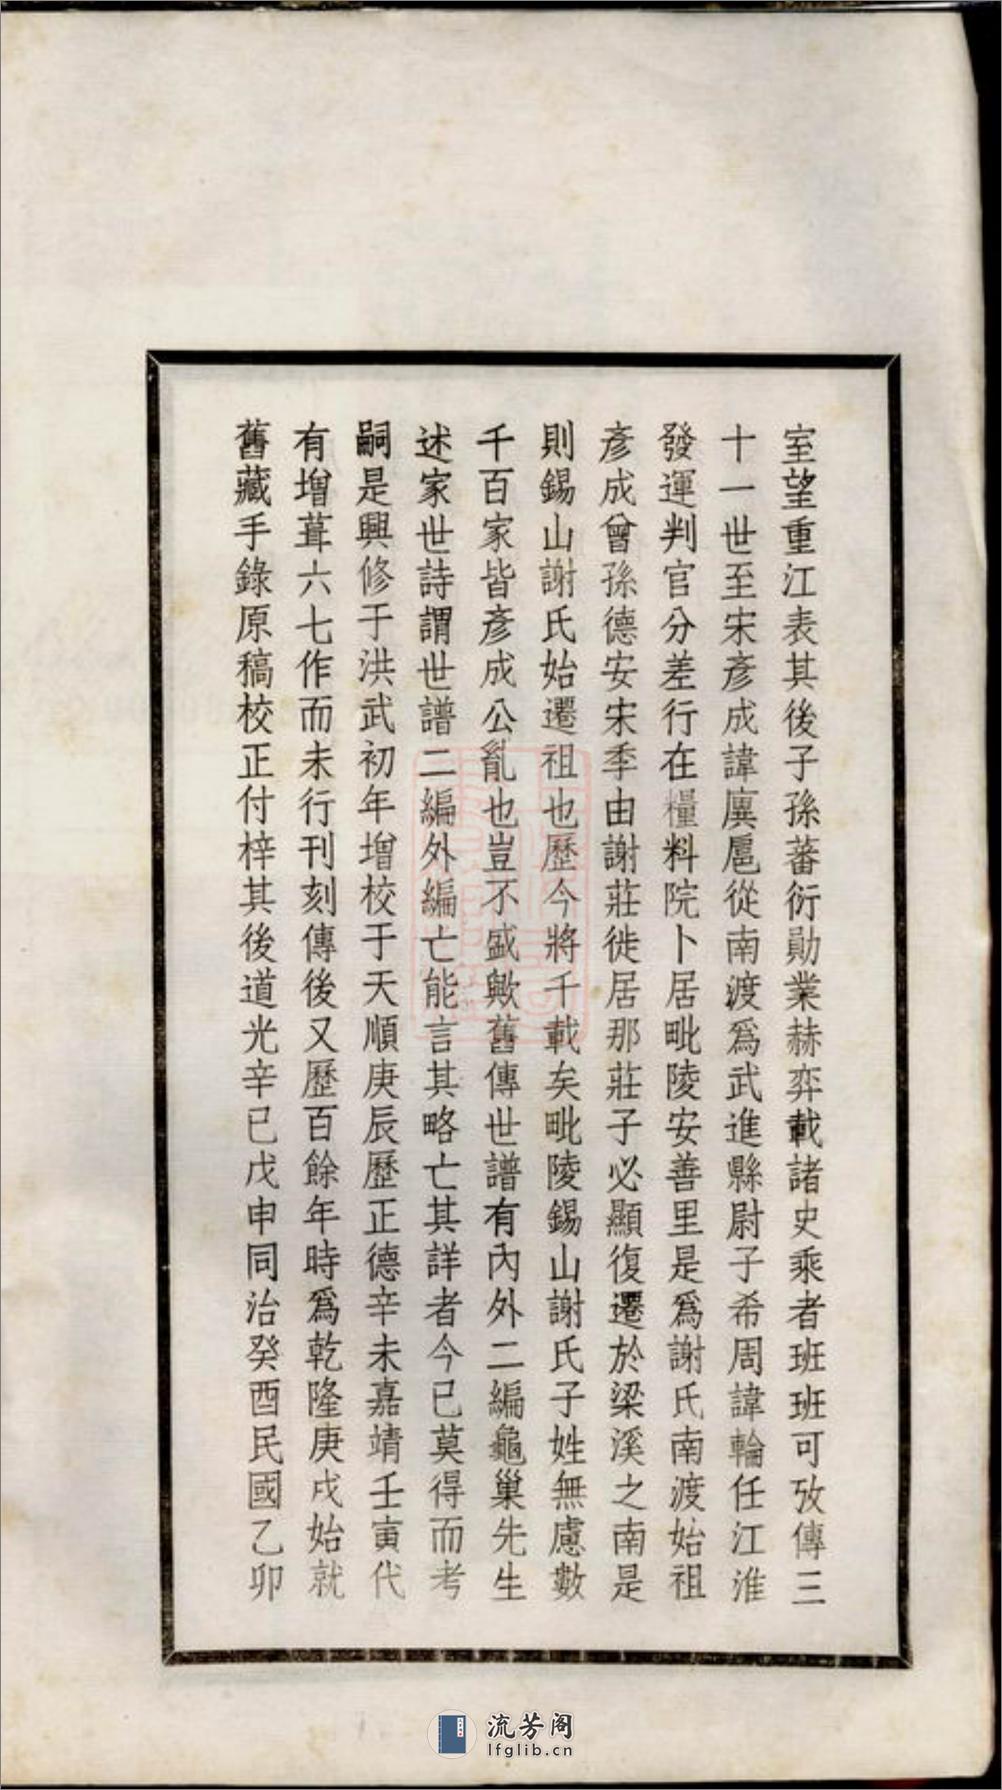 室望重江表其後子孫蕃衍勛業赫弈載諸史乘者班班可攷傳三
十一世至宋彥成諱廙扈從南渡爲武進縣尉子希周諱輪任江淮
發運判官分差行在糧料院卜居毗陵安善里是爲謝氏南渡始祖
彥成曾孫德安宋季由謝莊徙居那莊子必顯復遷於梁溪之南是
則錫山謝氏始遷祖也歷今將千載矣毗陵錫山謝氏子姓無慮數
千百家皆彥成公亂也豈不盛歟舊傳世譜有內外二編龜巢先生
述家世詩謂世譜二編外編亡能言其略亡其詳者今已莫得而考
嗣是興修于洪武初年增校于天順庚辰歷正德辛未嘉靖壬寅代
有增葺六七作而未行刊刻傳後又歷百餘年時爲乾隆庚戌始就
舊藏手錄原稿校正付梓其後道光辛巳戊申同治癸酉民國乙卯
流芳阁
lfglib.cn